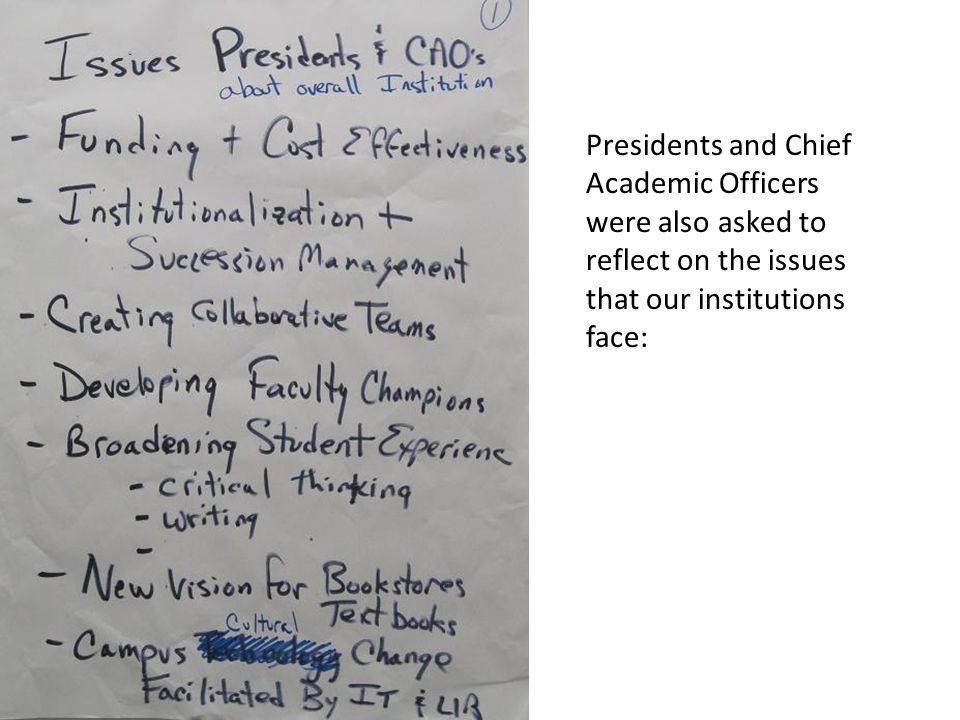 1
Issues Presidents & CAO's
about overall Institution
- Funding + Cost Effectiveness
- Institutionalization +
Succession Management
- Creating Collaborative Teams
- Developing Faculty Champions
- Broadening Student Experienc
- critical thinking
- writing
-
- New Vision for Bookstores
Textbooks
Cultural
- Campus Technology Change
Facilitated By IT & LIB
Presidents and Chief
Academic Officers
were also asked to
reflect on the issues
that our institutions
face: